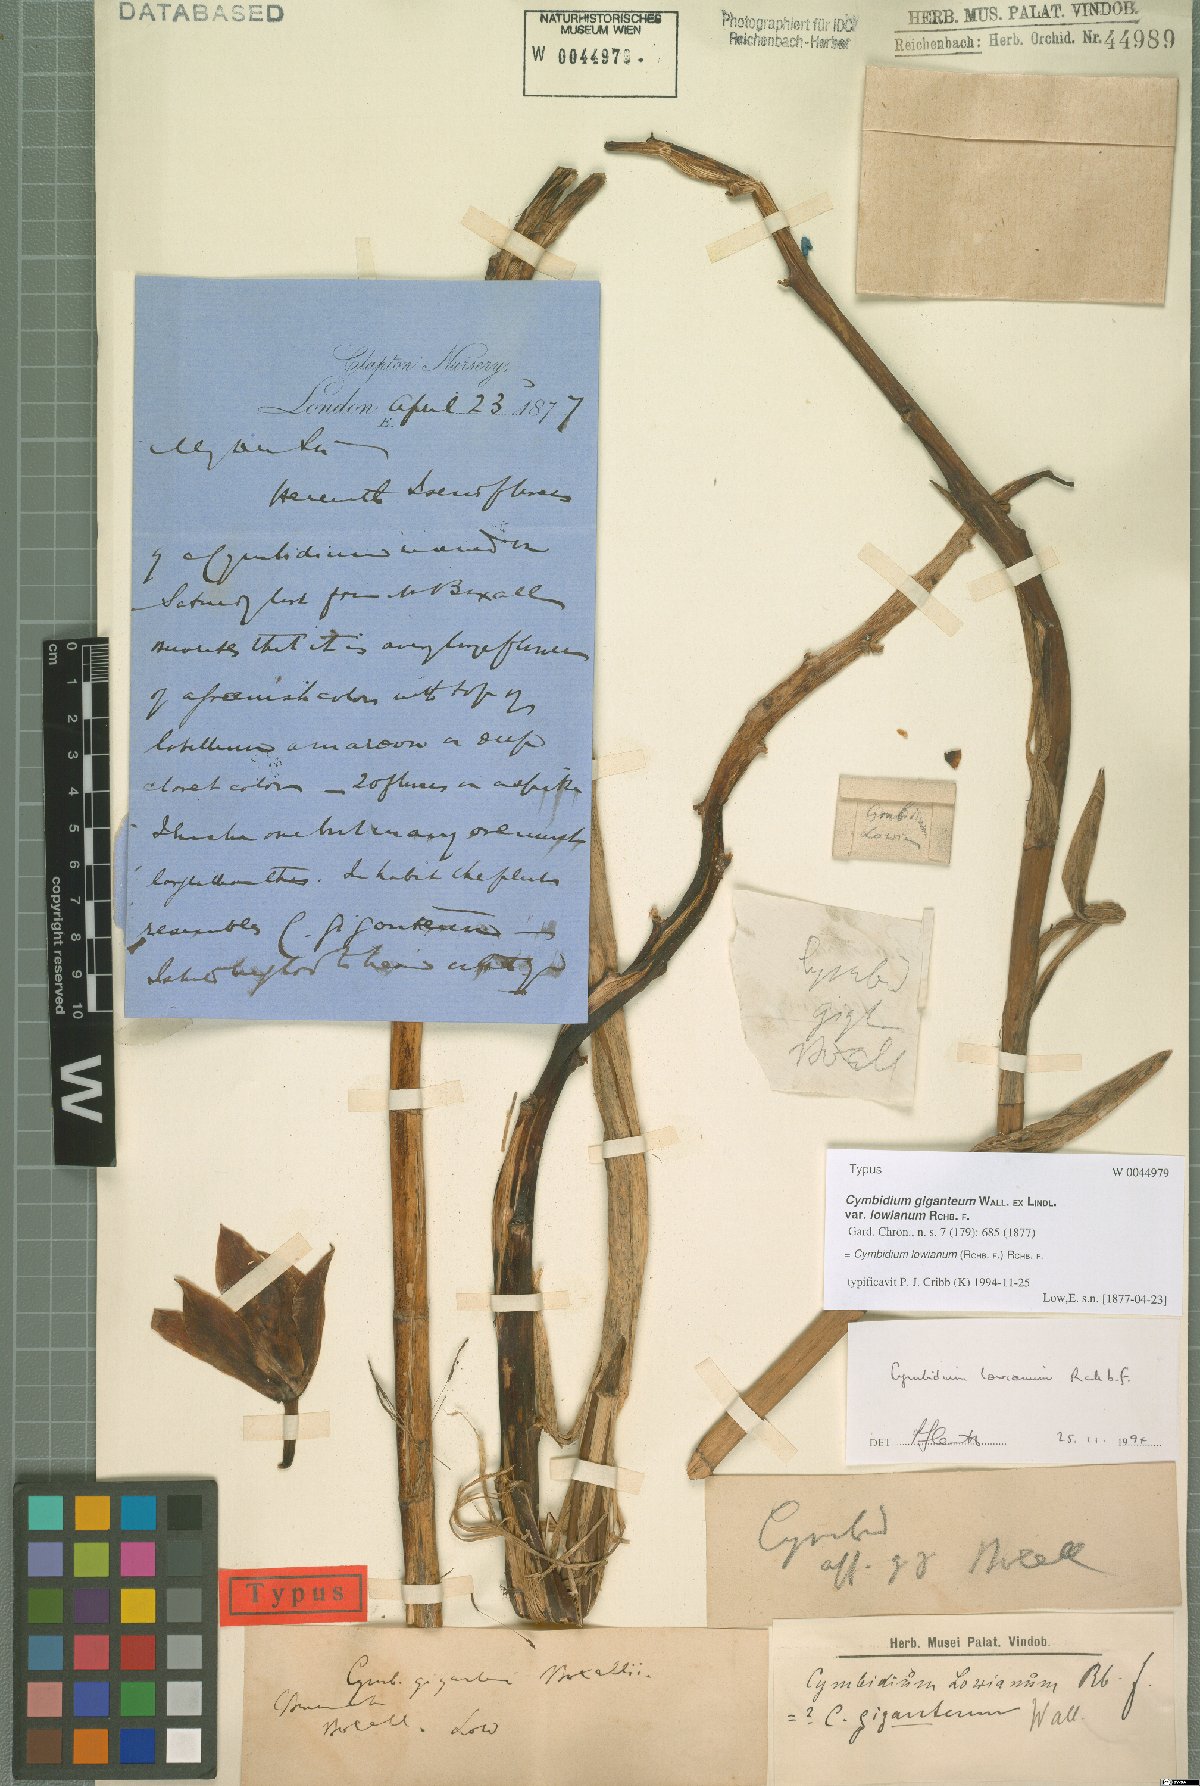 DATABASED
NATURHISTORISCHES
MUSEUM WIEN
W 0044979.
Photographiert für IDC
Reichenbach-Herbar
HERB. MUS. PALAT. VINDOB.
Reichenbach: Herb. Orchid. Nr. 44989
Clapton Nursery,
London, E. April 23 1877
My dear Sir
Herewith I send flowers
of a Cymbidium received on
Saturday last from Mr Boxall
it is a very large flower
of a greenish color with top of
labellum a maroon or deep
claret color — 20 flowers on a spike
I have one but many are much
larger than this. In habit the plant
resembles C. giganteum —
cm
0
1
2
3
4
5
6
7
8
9
10
copyright reserved
W
Cymbidium
Lowian
Cymbid
gigt
Boxall
Typus W 0044979
Cymbidium giganteum WALL. EX LINDL.
var. lowianum RCHB. F.
Gard. Chron., n. s. 7 (179): 685 (1877)
= Cymbidium lowianum (RCHB. F.) RCHB. F.
typificavit P. J. Cribb (K) 1994-11-25
Low,E. s.n. [1877-04-23]
Cymbidium lowianum Rchb.f.
DET. 25. 11. 1994
Cymbid
aff. gg Boxall
Typus
Cymb. giganteum Boxallii.
Boxall. Low
Herb. Musei Palat. Vindob.
Cymbidium Lowianum Rb. f.
= ? C. giganteum Wall.